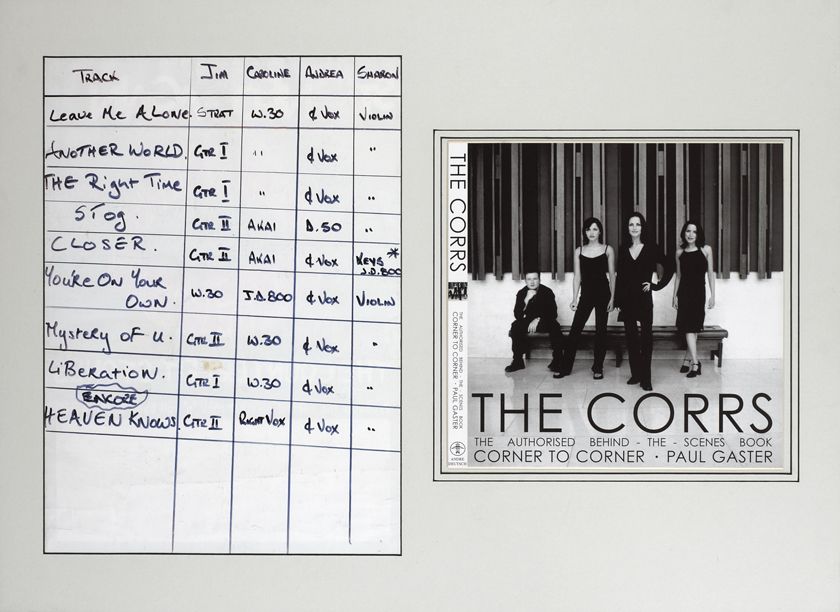 TRACK JIM CAROLINE ANDREA SHARON
Leave Me Alone. STRAT W.30 ¢ Vox VIOLIN
ANOTHER WORLD. GTR I " ¢ Vox "
THE Right Time GTR I " ¢ Vox "
STog. GTR II AKAI D.50 "
CLOSER. GTR II AKAI ¢ Vox KEYS *
J.D.800
You're On Your
OWN. W.30 J.D.800 ¢ Vox VIOLIN
Mystery of u. GTR II W.30 ¢ Vox "
LiBeration. GTR I W.30 ¢ Vox "
ENCORE
HEAVEN KNOWS. GTR II RIGHT VOX ¢ Vox "
THE CORRS
THE AUTHORISED BEHIND - THE - SCENES BOOK
CORNER TO CORNER · PAUL GASTER
ANDRE
DEUTSCH
THE CORRS
THE AUTHORISED BEHIND - THE - SCENES BOOK
CORNER TO CORNER · PAUL GASTER